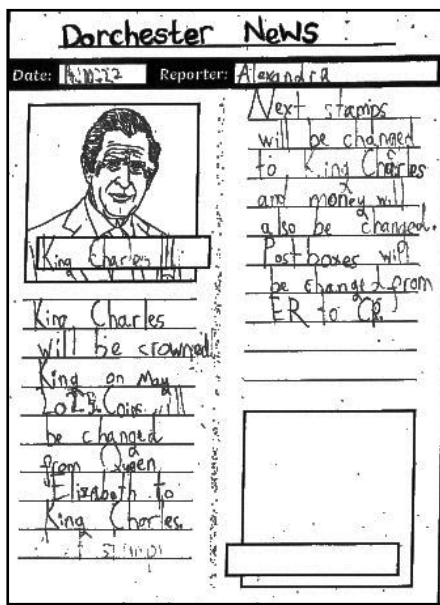 Dorchester News
Date:
Reporter: Alexandra
King Charles III
King Charles
will be crowned
King on May
2023. Coins will
be changed
from Queen
Elizabeth to
King Charles.
Next stamps
will be changed
to King Charles
and money will
also be changed.
Post boxes will
be changed from
ER to CR